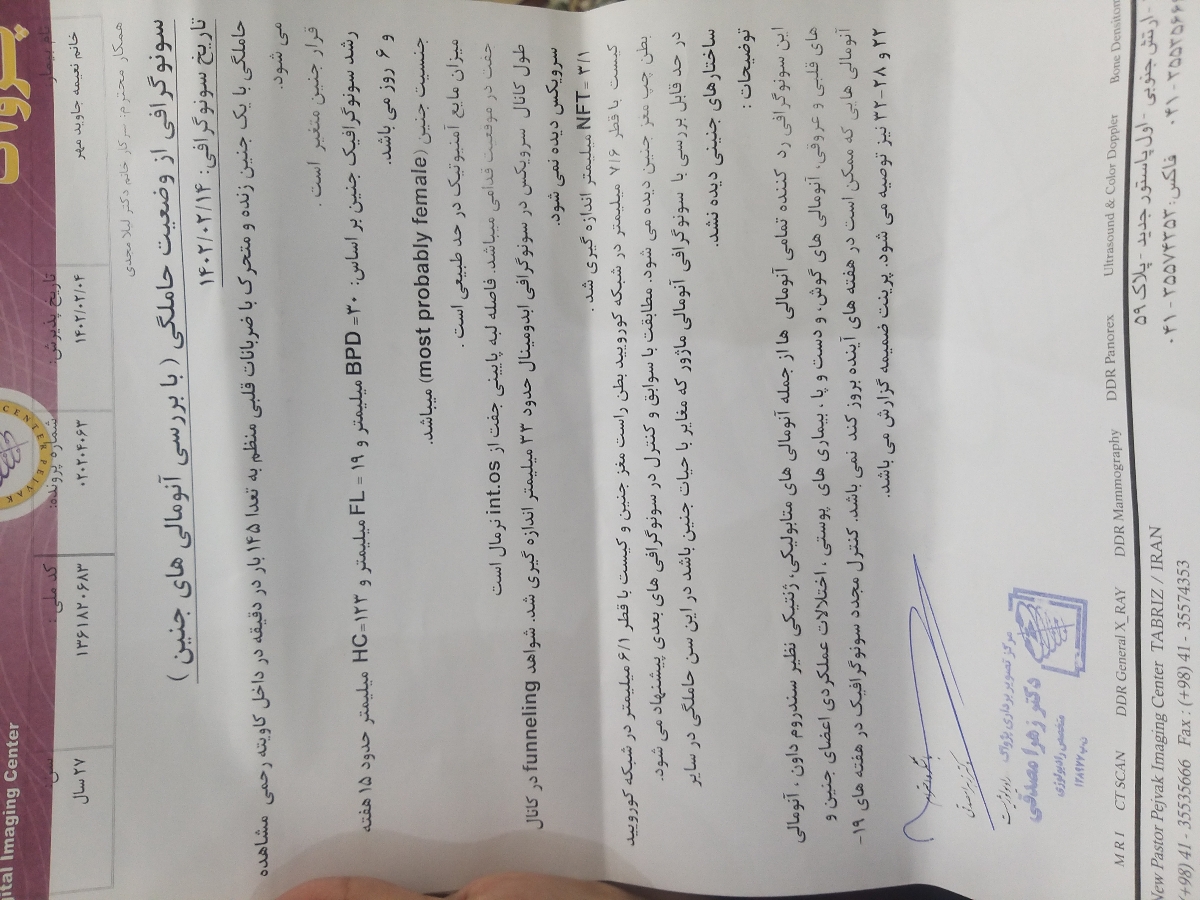 پژواک
Digital Imaging Center
CENTER PEJVAK
نام بیمار: خانم نعیمه جاوید مهر
تاریخ پذیرش: ۱۴۰۲/۰۲/۰۴
شماره پرونده: ۰۲۰۲۰۴۰۶۳
کد ملی: ۱۳۶۱۸۲۰۶۸۳
سن ۲۷ سال
همکار محترم: سرکار خانم دکتر لیلا مجدی
سونوگرافی از وضعیت حاملگی ( با بررسی آنومالی های جنین )
تاریخ سونوگرافی: ۱۴۰۲/۰۲/۱۴
حاملگی با یک جنین زنده و متحرک با ضربانات قلبی منظم به تعدا ۱۴۵ بار در دقیقه در داخل کاویته رحمی مشاهده
می شود.
قرار جنین متغیر است .
رشد سونوگرافیک جنین بر اساس: BPD =۳۰ میلیمتر و FL = ۱۹ میلیمتر و HC=۱۲۳ میلیمتر حدود ۱۵ هفته
و ۶ روز می باشد.
جنسیت جنین (most probably female) میباشد.
میزان مایع آمنیوتیک در حد طبیعی است .
جفت در موقعیت قدامی میباشد. فاصله لبه پایینی جفت از int.os نرمال است
طول کانال سرویکس در سونوگرافی ابدومینال حدود ۳۳ میلیمتر اندازه گیری شد. شواهد funneling در کانال
سرویکس دیده نمی شود.
NFT= ۳/۱ میلیمتر اندازه گیری شد.
کیست با قطر ۷/۶ میلیمتر در شبکه کورویید بطن راست مغز جنین و کیست با قطر ۶/۱ میلیمتر در شبکه کورویید
بطن چپ مغز جنین دیده می شود. مطابقت با سوابق و کنترل در سونوگرافی های بعدی پیشنهاد می شود.
در حد قابل بررسی با سونوگرافی آنومالی ماژور که مغایر با حیات جنین باشد در این سن حاملگی در سایر
ساختارهای جنینی دیده نشد.
توضیحات :
این سونوگرافی رد کننده تمامی آنومالی ها از جمله آنومالی های متابولیکی، ژنتیکی نظیر سندروم داون ، آنومالی
های قلبی و عروقی، آنومالی های گوش، و دست و پا ، بیماری های پوستی ، اختلالات عملکردی اعضای جنین و
آنومالی هایی که ممکن است در هفته های آینده بروز کند نمی باشد. کنترل مجدد سونوگرافیک در هفته های ۱۹-
۲۲ و ۲۸-۳۲ نیز توصیه می شود. پرینت ضمیمه گزارش می باشد.
مرکز تصویر برداری پژواک
دکتر زهرا مصدقی
متخصص رادیولوژی
M R I CT SCAN DDR General X_RAY DDR Mammography DDR Panorex Ultrasound & Color Doppler Bone Densitom
- ارتش جنوبی - اول پاستور جدید - پلاک ۵۹
۰۴۱ - ۳۵۵۳۵۶۶۶ فاکس: ۳۵۵۷۴۳۵۳ - ۰۴۱
New Pastor Pejvak Imaging Center TABRIZ / IRAN
(+98) 41 - 35535666 Fax : (+98) 41 - 35574353